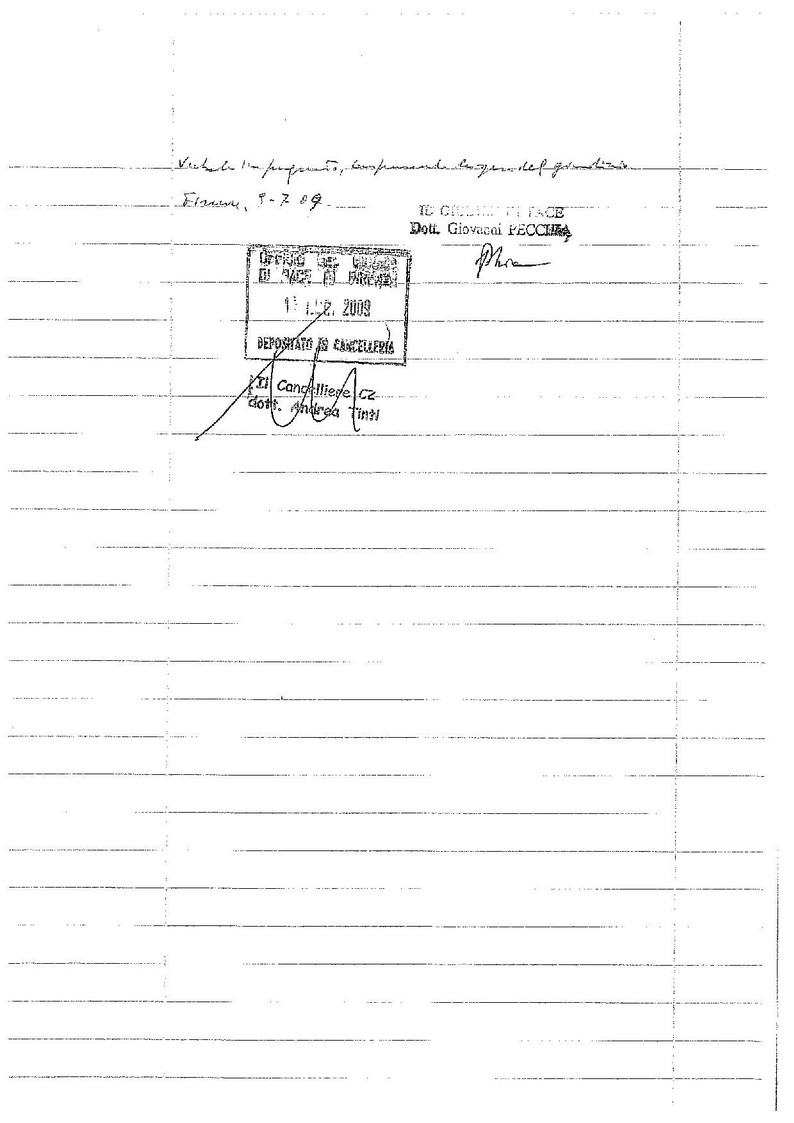 Verbale impugnato, compensando le spese del giudizio
Firenze, 9-7 09
IL GIUDICE DI PACE
Dott. Giovanni PECCHIA
UFFICIO DEL GIUDICE
DI PACE DI FIRENZE
LUG. 2009
DEPOSITATO IN CANCELLERIA
Il Cancelliere C2
dott. Andrea Tinti